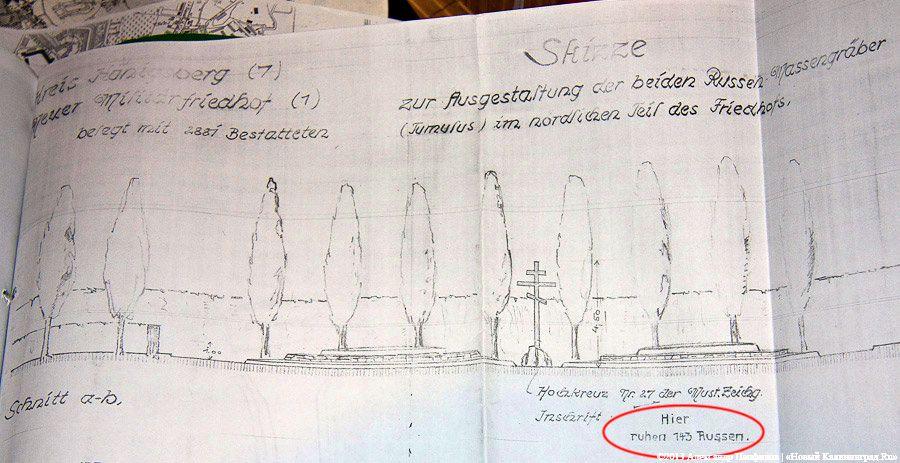 Kreis Königsberg (7)
Neuer Militärfriedhof (1)
belegt mit 2881 Bestatteten
Skizze
zur Ausgestaltung der beiden Russen-Massengräber
(Tumulus) im nördlichen Teil des Friedhofs.
4.50
Schnitt a-b.
Holzkreuz Nr. 27 der Must. Zeichg.
Inschrift:
Hier
ruhen 143 Russen.
«Новый Калининград.Ru»